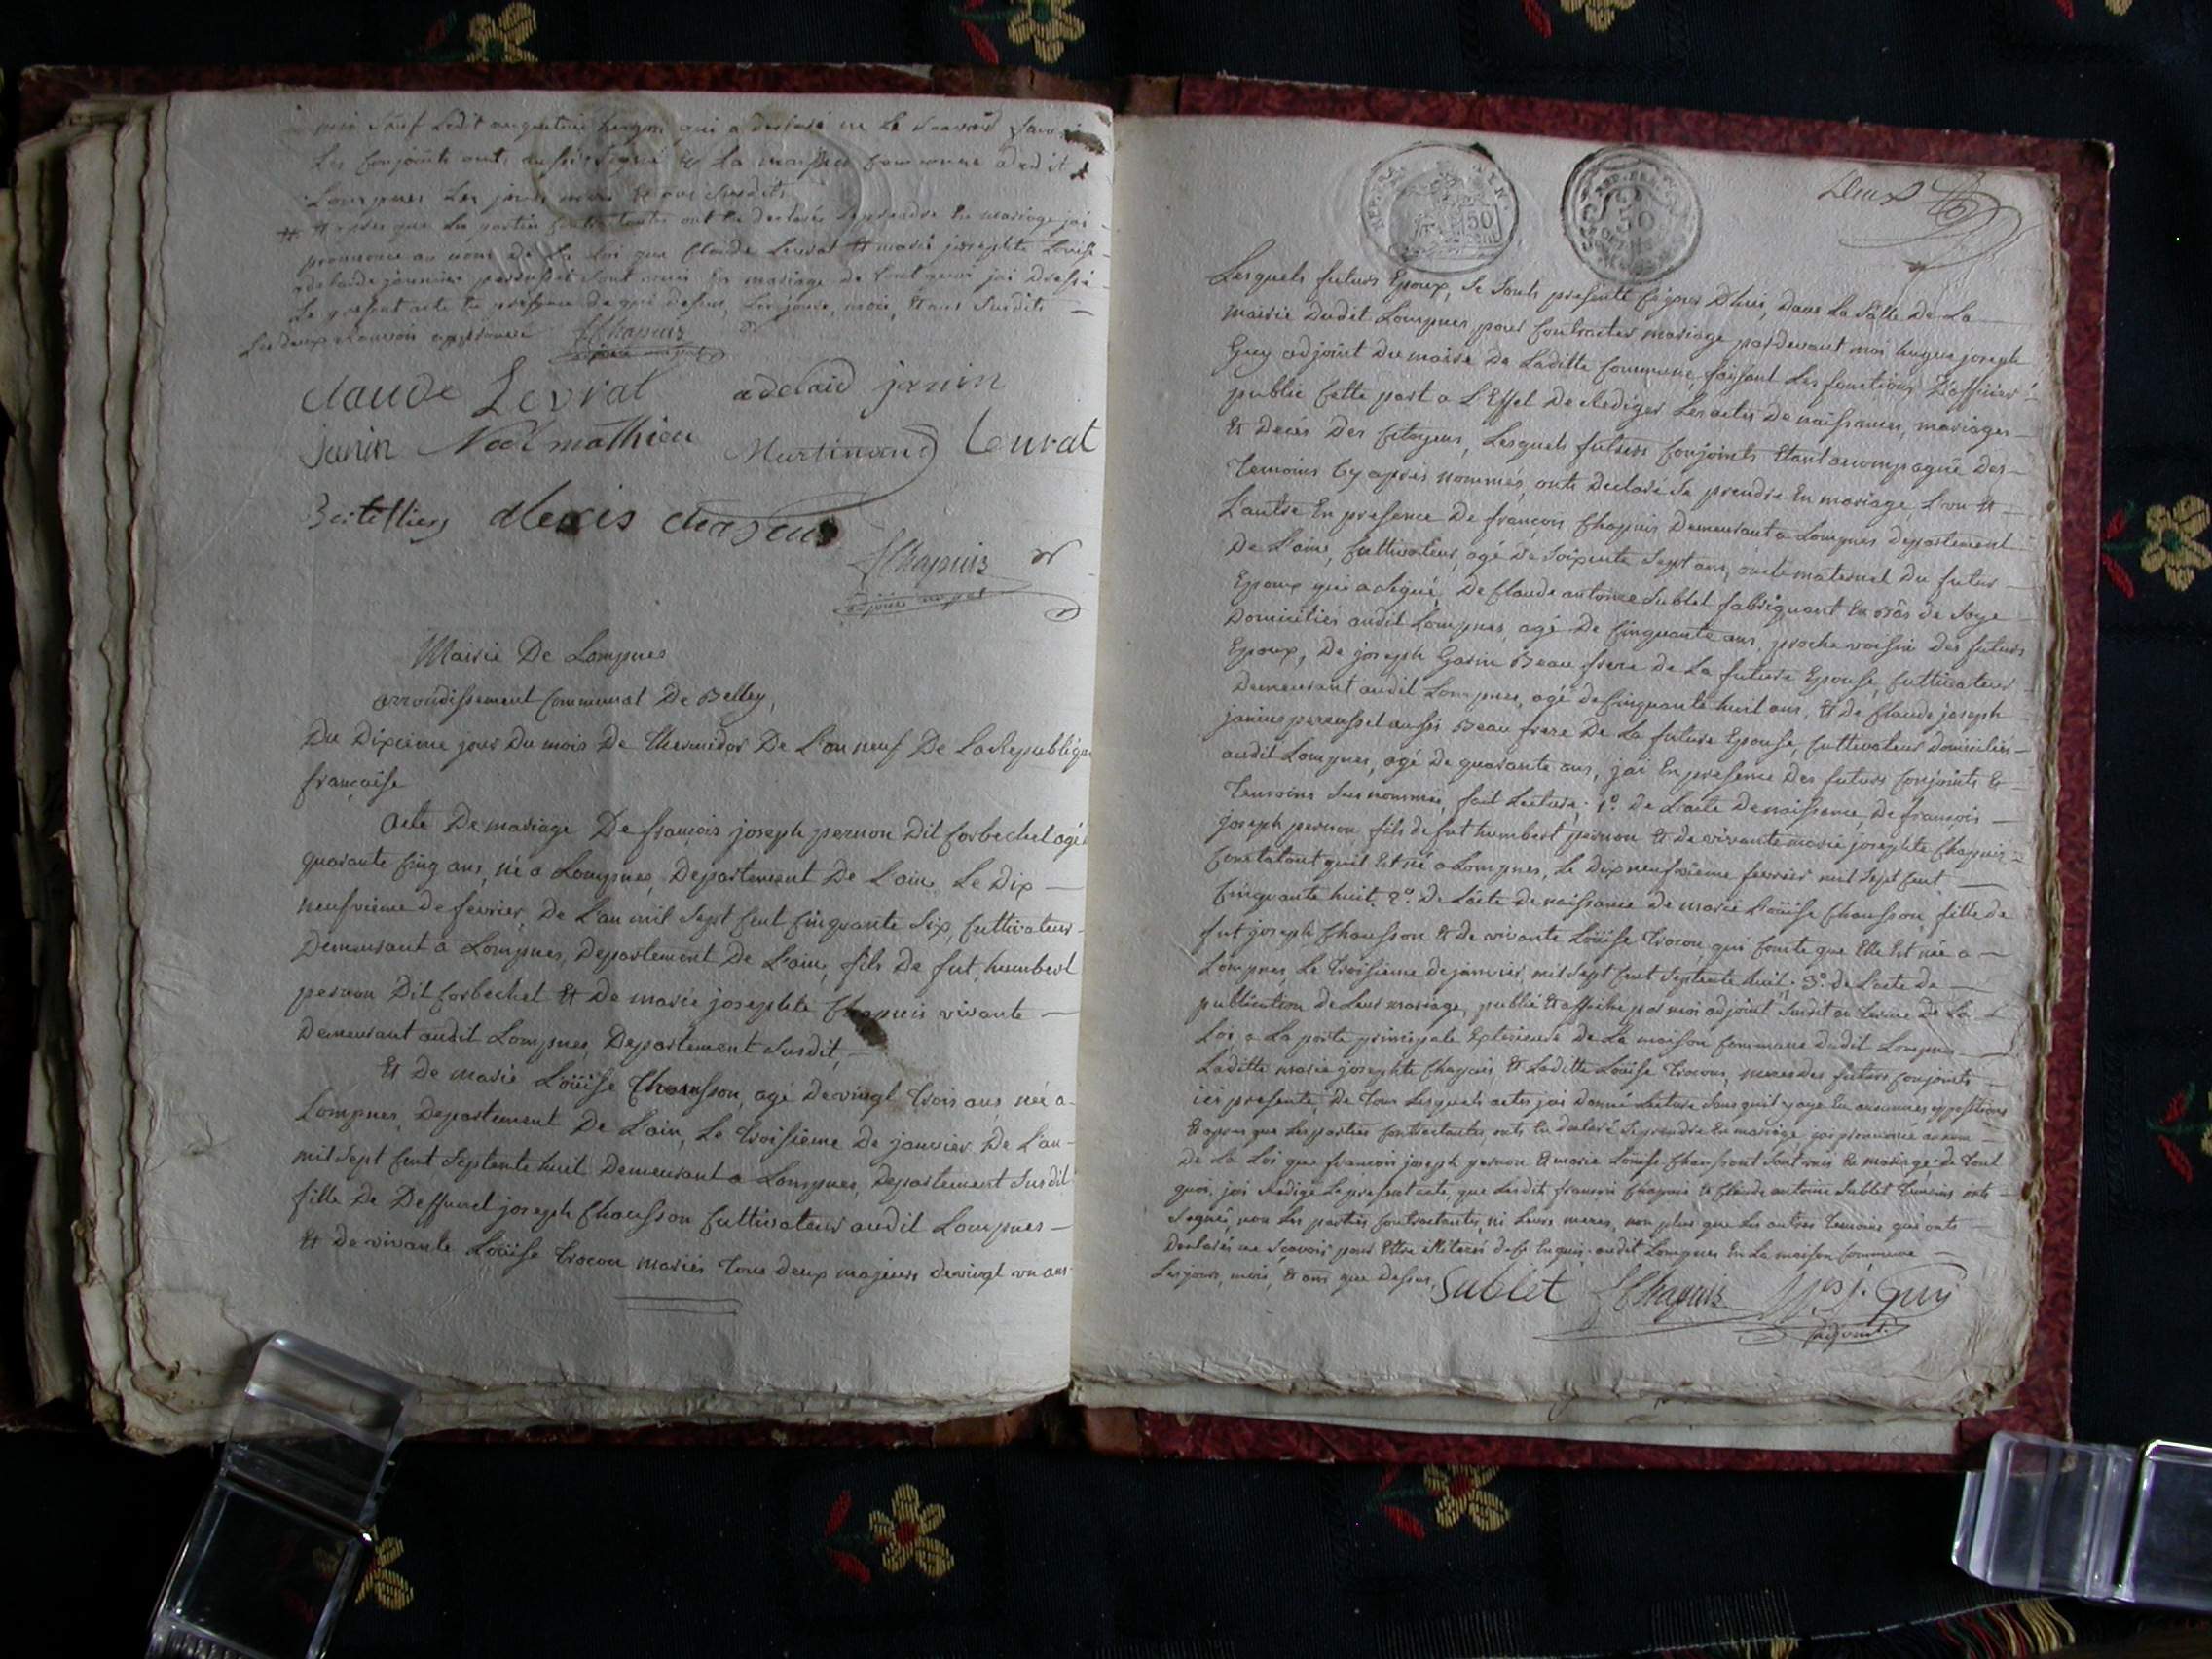 moi sauf ledit augustin hugon qui a declaré ne le scavoir faire
Les Conjoints ont aussi signé & La maison Commune dudit
Lompnes Les jour mois & an susdits
# & apres que les parties contractantes ont eu declarés se prendre En mariage jai
prononcé au nom de La Loi que Claude Levrat & marie josephte Louise
adelaide jannin perrusset sont unis En mariage de tout quoi jai Dressé
Le present acte En presence de qui dessus, Les jour, mois, & an susdits
Les deux Renvois approuvé JfChapuis
adjoint
Claude Levrat adelaid janin
janin Noël mathieu Martinand Levrat
Bertilliers alexis
JfChapuis
adjoint
Mairie De Lompnes
arrondissement Communal De Belley,
Du Dixième jour Du mois De thermidor De L'an neuf De La Republique
française
Acte De mariage De françois joseph pernon Dit Corbechet agé
quarante Cinq ans, né a Lompnes, Departement De L'ain, Le Dix
neufvieme de fevrier, De L'an mil sept Cent Cinquante Six, Cultivateur
Demeurant a Lompnes, Departement De L'ain, fils De fut humbert
pernon Dit Corbechet & De marie josephte Chapuis vivante
Demeurant audit Lompnes, Departement susdit,
& De marie Loüise Chausson, agé De vingt trois ans, née a
Lompnes, Departement De L'ain, Le troisieme De janvier De L'an
mil sept Cent septente huit Demeurant a Lompnes, Departement susdit
fille De Deffunct joseph Chausson Cultivateur audit Lompnes
& De vivante Loüise trocon mariés tous deux majeurs de vingt un ans
Deux
REP. FRA
50
REP. FRA
50
Lesquels futurs Epoux, Se Sonts presenté Cejour D'hui, Dans La Salle De La
mairie Dudit Lompnes, pour Contracter mariage pardevant moi hugue joseph
Guy adjoint Du maire De Laditte Commune, faisant Les fonctions D'officier
public Cette part a L'Effet De Rediger Les actes De naissances, mariages
& Decés Des Citoyens, Lesquels futurs Conjoints Etant acompagné Des
temoins Cy après nommés, onts Declaré Se prendre En mariage, L'un &
L'autre En presence De françois Chapuis Demeurant a Lompnes departement
De L'ain, Cultivateur, agé De Soixente Sept ans, oncle maternel Du futur
Epoux qui a signé, De Claude antoine Sublet fabriquant En Bâs de Soye
Domiciliés audit Lompnes, agé De Cinquante ans, proche voisin Des futurs
Epoux, De joseph Garin Beau frere De La future Epouse, Cultivateur
Demeurant audit Lompnes, agé de Cinquante huit ans, & de Claude joseph
janin perrusset aussi Beau frere De La future Epouse, Cultivateur Domiciliés
audit Lompnes, agé De quarante ans, jai En presence Des futurs Conjoints &
temoins Sus nommés, fait Lecture; 1o. De L'acte De naissance, De françois
joseph pernon, fils de fut humbert pernon & De vivante marie josephte Chapuis
Constatant quil Est né a Lompnes, Le Dix neufvieme fevrier mil sept Cent
Cinquante huit. 2o. De L'acte De naissance de marie Loüise Chausson, fille de
fut joseph Chausson & de vivante Loüise trocon, qui Conste que Elle Est née a
Lompnes, Le troisieme de janvier mil Sept Cent Septente huit. 3o. De L'acte de
publication de Leur mariage, publié & affiché par moi adjoint susdit au terme De La
Loi a La porte principale Exterieure De La maison Commune Dudit Lompnes
Laditte marie josephte Chapuis, & Laditte Loüise trocon, meres des futurs Conjoints
ici presente, De tous Lesquels actes jai Donné Lecture Sans quil y aye Eu aucunnes oppositions
& apres que Les parties Contractantes, onts Eu declaré Se prendre En mariage, jai prononcé au nom
De La Loi que francois joseph pernon & marie Louise Chausson sont unis En mariage; de tout
quoi, jai Redigé Le present acte, que Lesdits francois Chapuis & Claude antoine Sublet temoins onts
signés, non Les parties Contractantes, ni Leurs meres, non plus que Les autres temoins qui onts
Declarés ne scavoir pour Ettre illiterés de ce Enquis. audit Lompnes En La maison Commune
Les jours, mois, & ans que Dessus. Sublet JfChapuis hues j. Guy
adjoint